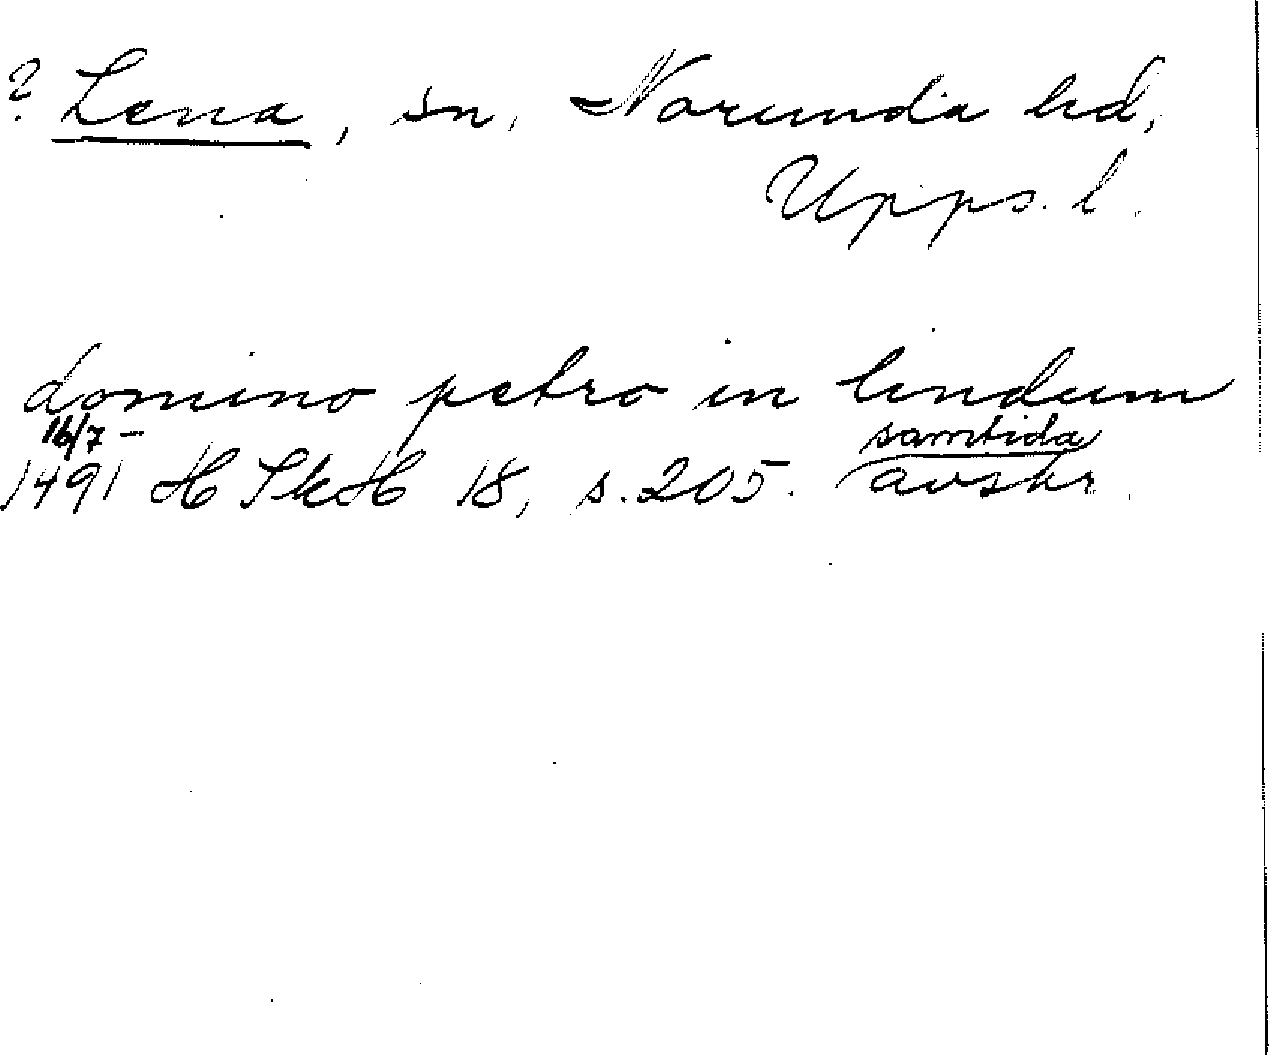 ? Lena, sn, Norunda hd,
Upps. l.
domino petro in lendum
16/7 - samtida
1491 HSkH 18, s. 205. avskr.